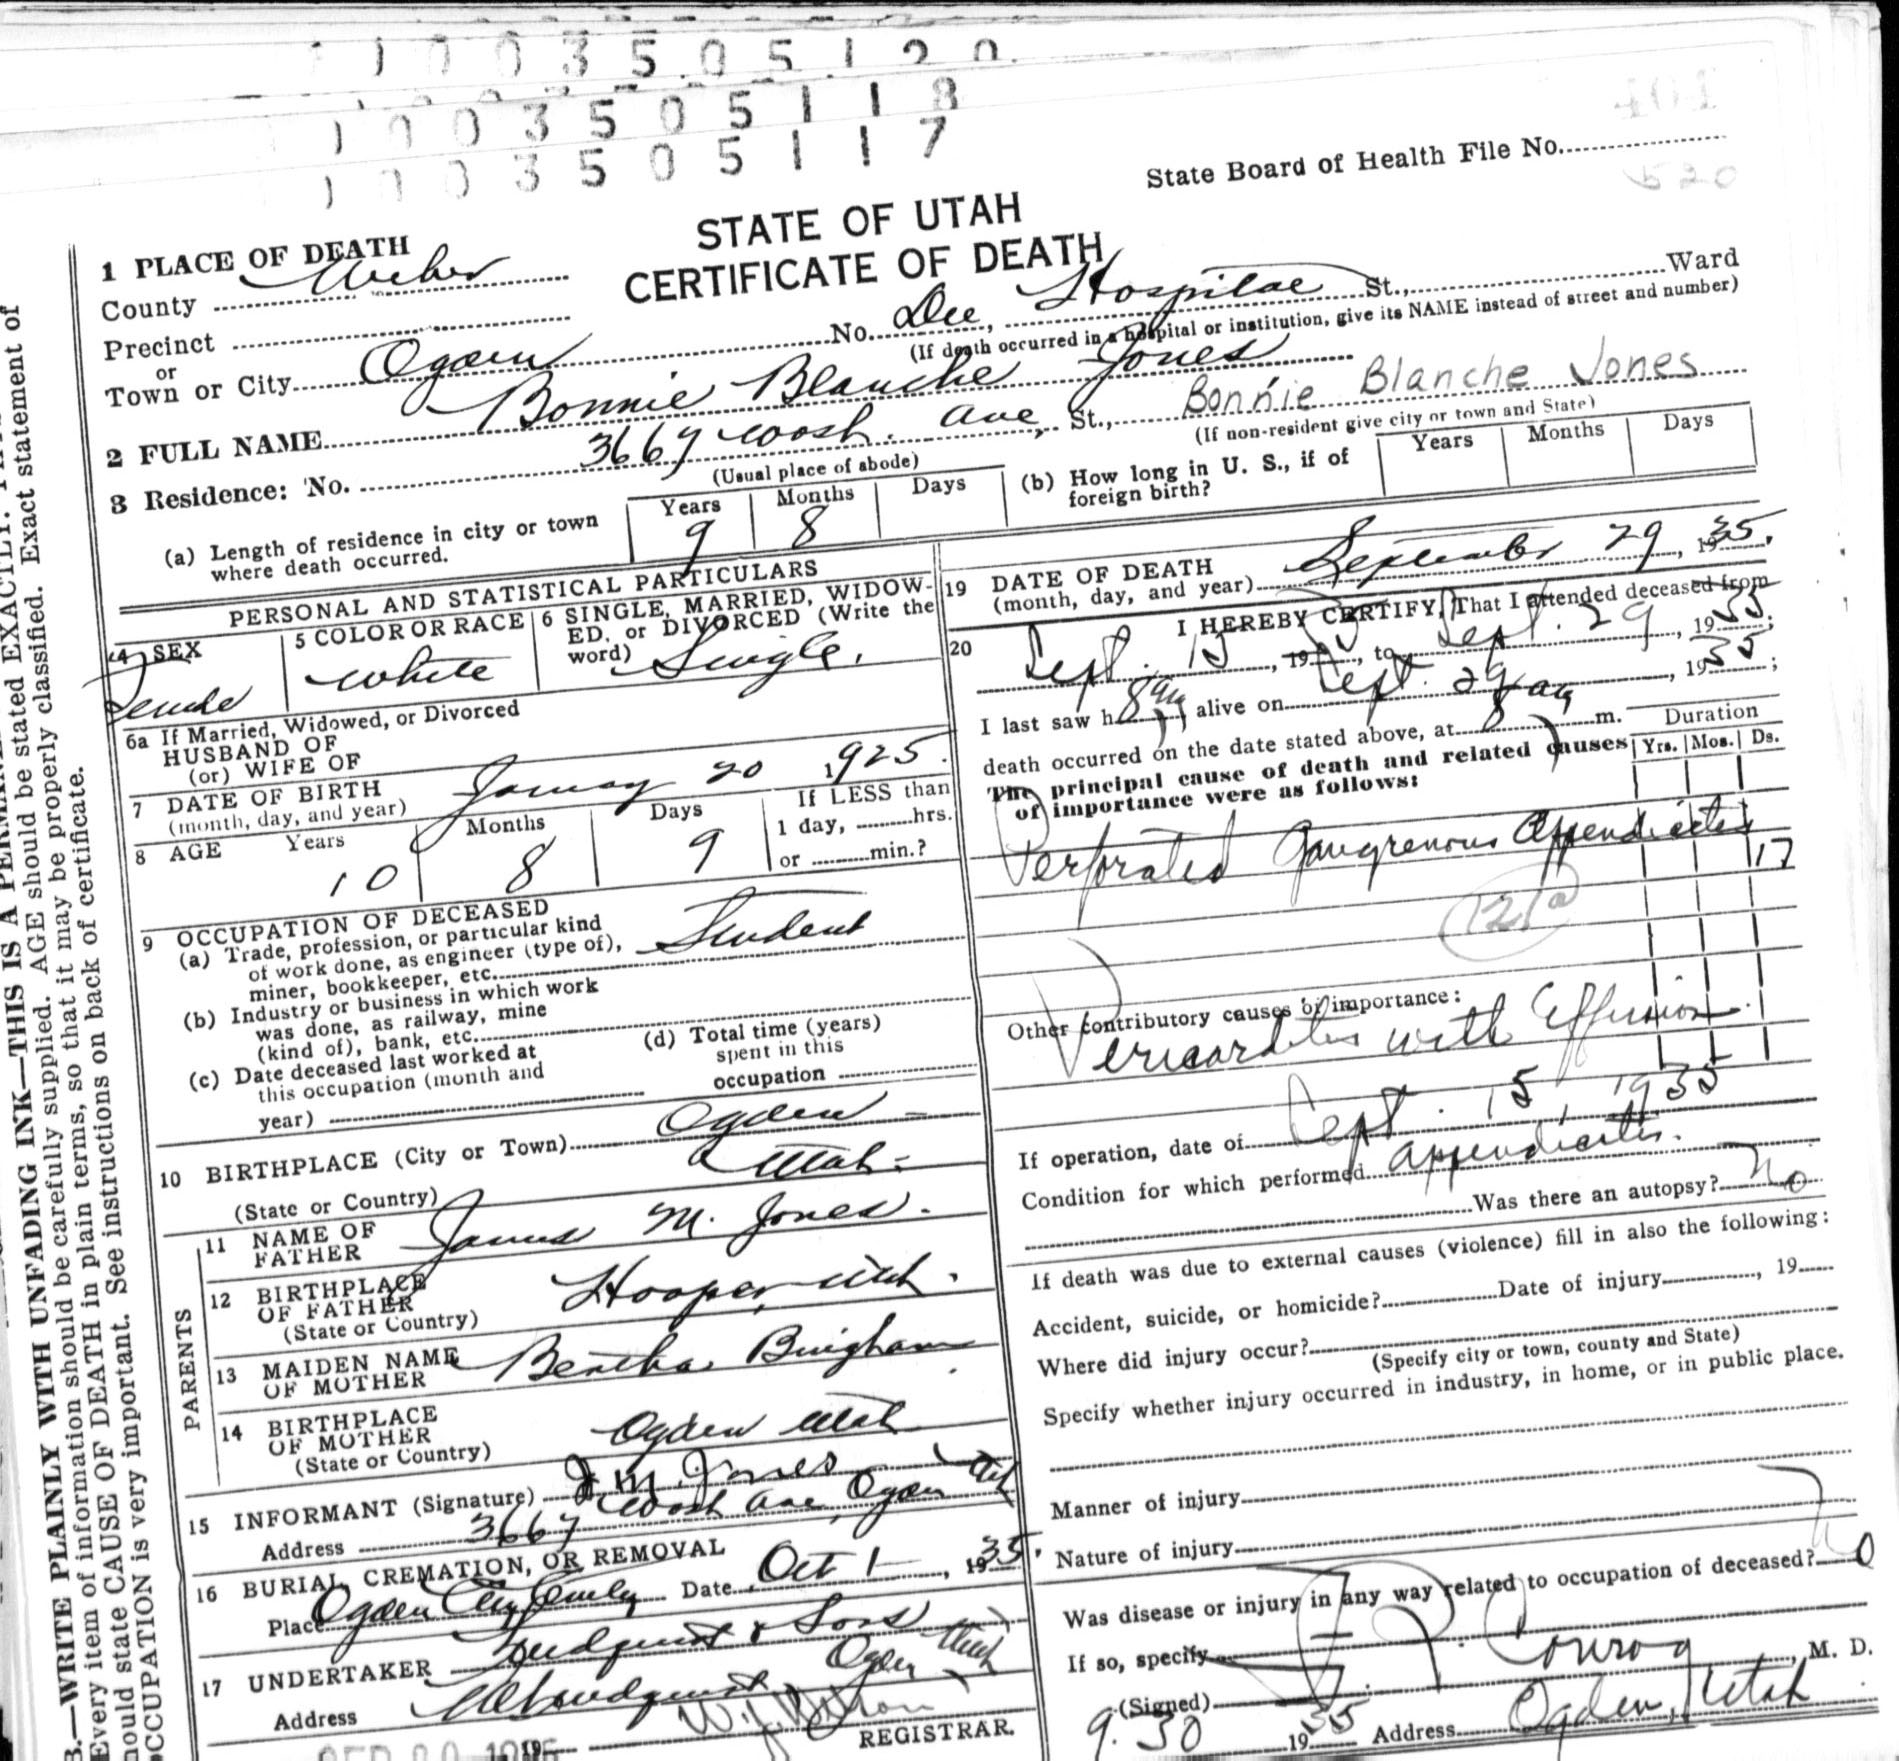 1 0 0 3 5 0 5 1 2 0
1 0 0 3 5 0 5 1 1 8
1 0 0 3 5 0 5 1 1 7
401
State Board of Health File No.
520
STATE OF UTAH
CERTIFICATE OF DEATH
1 PLACE OF DEATH
County Weber
Precinct
or
Town or City Ogden No. Dee Hospital St., Ward
(If death occurred in a hospital or institution, give its NAME instead of street and number)
2 FULL NAME Bonnie Blanche Jones Bonnie Blanche Jones
3 Residence: No. 3667 Wash. Ave, St.,
(Usual place of abode) (If non-resident give city or town and State)
(a) Length of residence in city or town where death occurred. Years 9 Months 8 Days
(b) How long in U. S., if of foreign birth? Years Months Days
PERSONAL AND STATISTICAL PARTICULARS
4 SEX Female
5 COLOR OR RACE White
6 SINGLE, MARRIED, WIDOWED, or DIVORCED (Write the word) Single.
6a If Married, Widowed, or Divorced
HUSBAND OF
(or) WIFE OF
7 DATE OF BIRTH
(month, day, and year) January 20 1925.
8 AGE Years 10 Months 8 Days 9 If LESS than
1 day, hrs.
or min.?
9 OCCUPATION OF DECEASED
(a) Trade, profession, or particular kind
of work done, as engineer (type of),
miner, bookkeeper, etc. Student
(b) Industry or business in which work
was done, as railway, mine
(kind of), bank, etc.
(c) Date deceased last worked at
this occupation (month and
year)
(d) Total time (years)
spent in this
occupation
10 BIRTHPLACE (City or Town) Ogden
(State or Country) Utah
PARENTS
11 NAME OF FATHER James M. Jones.
12 BIRTHPLACE OF FATHER
(State or Country) Hooper, Utah.
13 MAIDEN NAME OF MOTHER Bertha Bingham
14 BIRTHPLACE OF MOTHER
(State or Country) Ogden Utah
15 INFORMANT (Signature) J. M. Jones
Address 3667 Wash Ave, Ogden Utah
16 BURIAL, CREMATION, OR REMOVAL
Place Ogden City Date Oct 1, 1935.
17 UNDERTAKER & Sons
Address Ogden Utah
REGISTRAR.
19 DATE OF DEATH
(month, day, and year) September 29, 1935.
20 I HEREBY CERTIFY, That I attended deceased from
Sept. 15, 19, to Sept. 29, 1935;
I last saw h alive on Sept. 29, 1935;
death occurred on the date stated above, at 8 m.
The principal cause of death and related causes
of importance were as follows:
Duration
Yrs. Mos. Ds.
Perforated Gangrenous Appendicitis 17
Other contributory causes of importance:
Pericarditis with Effusion
If operation, date of Sept. 15, 1935
Condition for which performed Appendicitis.
Was there an autopsy? No
If death was due to external causes (violence) fill in also the following:
Accident, suicide, or homicide? Date of injury, 19
Where did injury occur?
(Specify city or town, county and State)
Specify whether injury occurred in industry, in home, or in public place.
Manner of injury
Nature of injury
Was disease or injury in any way related to occupation of deceased? No
If so, specify
(Signed) Conroy, M. D.
9.30 1935 Address Ogden, Utah
B.—WRITE PLAINLY WITH UNFADING INK—THIS IS A
Every item of information should be carefully supplied. AGE should be stated EXACTLY.
should state CAUSE OF DEATH in plain terms, so that it may be properly classified. Exact statement of
OCCUPATION is very important. See instructions on back of certificate.